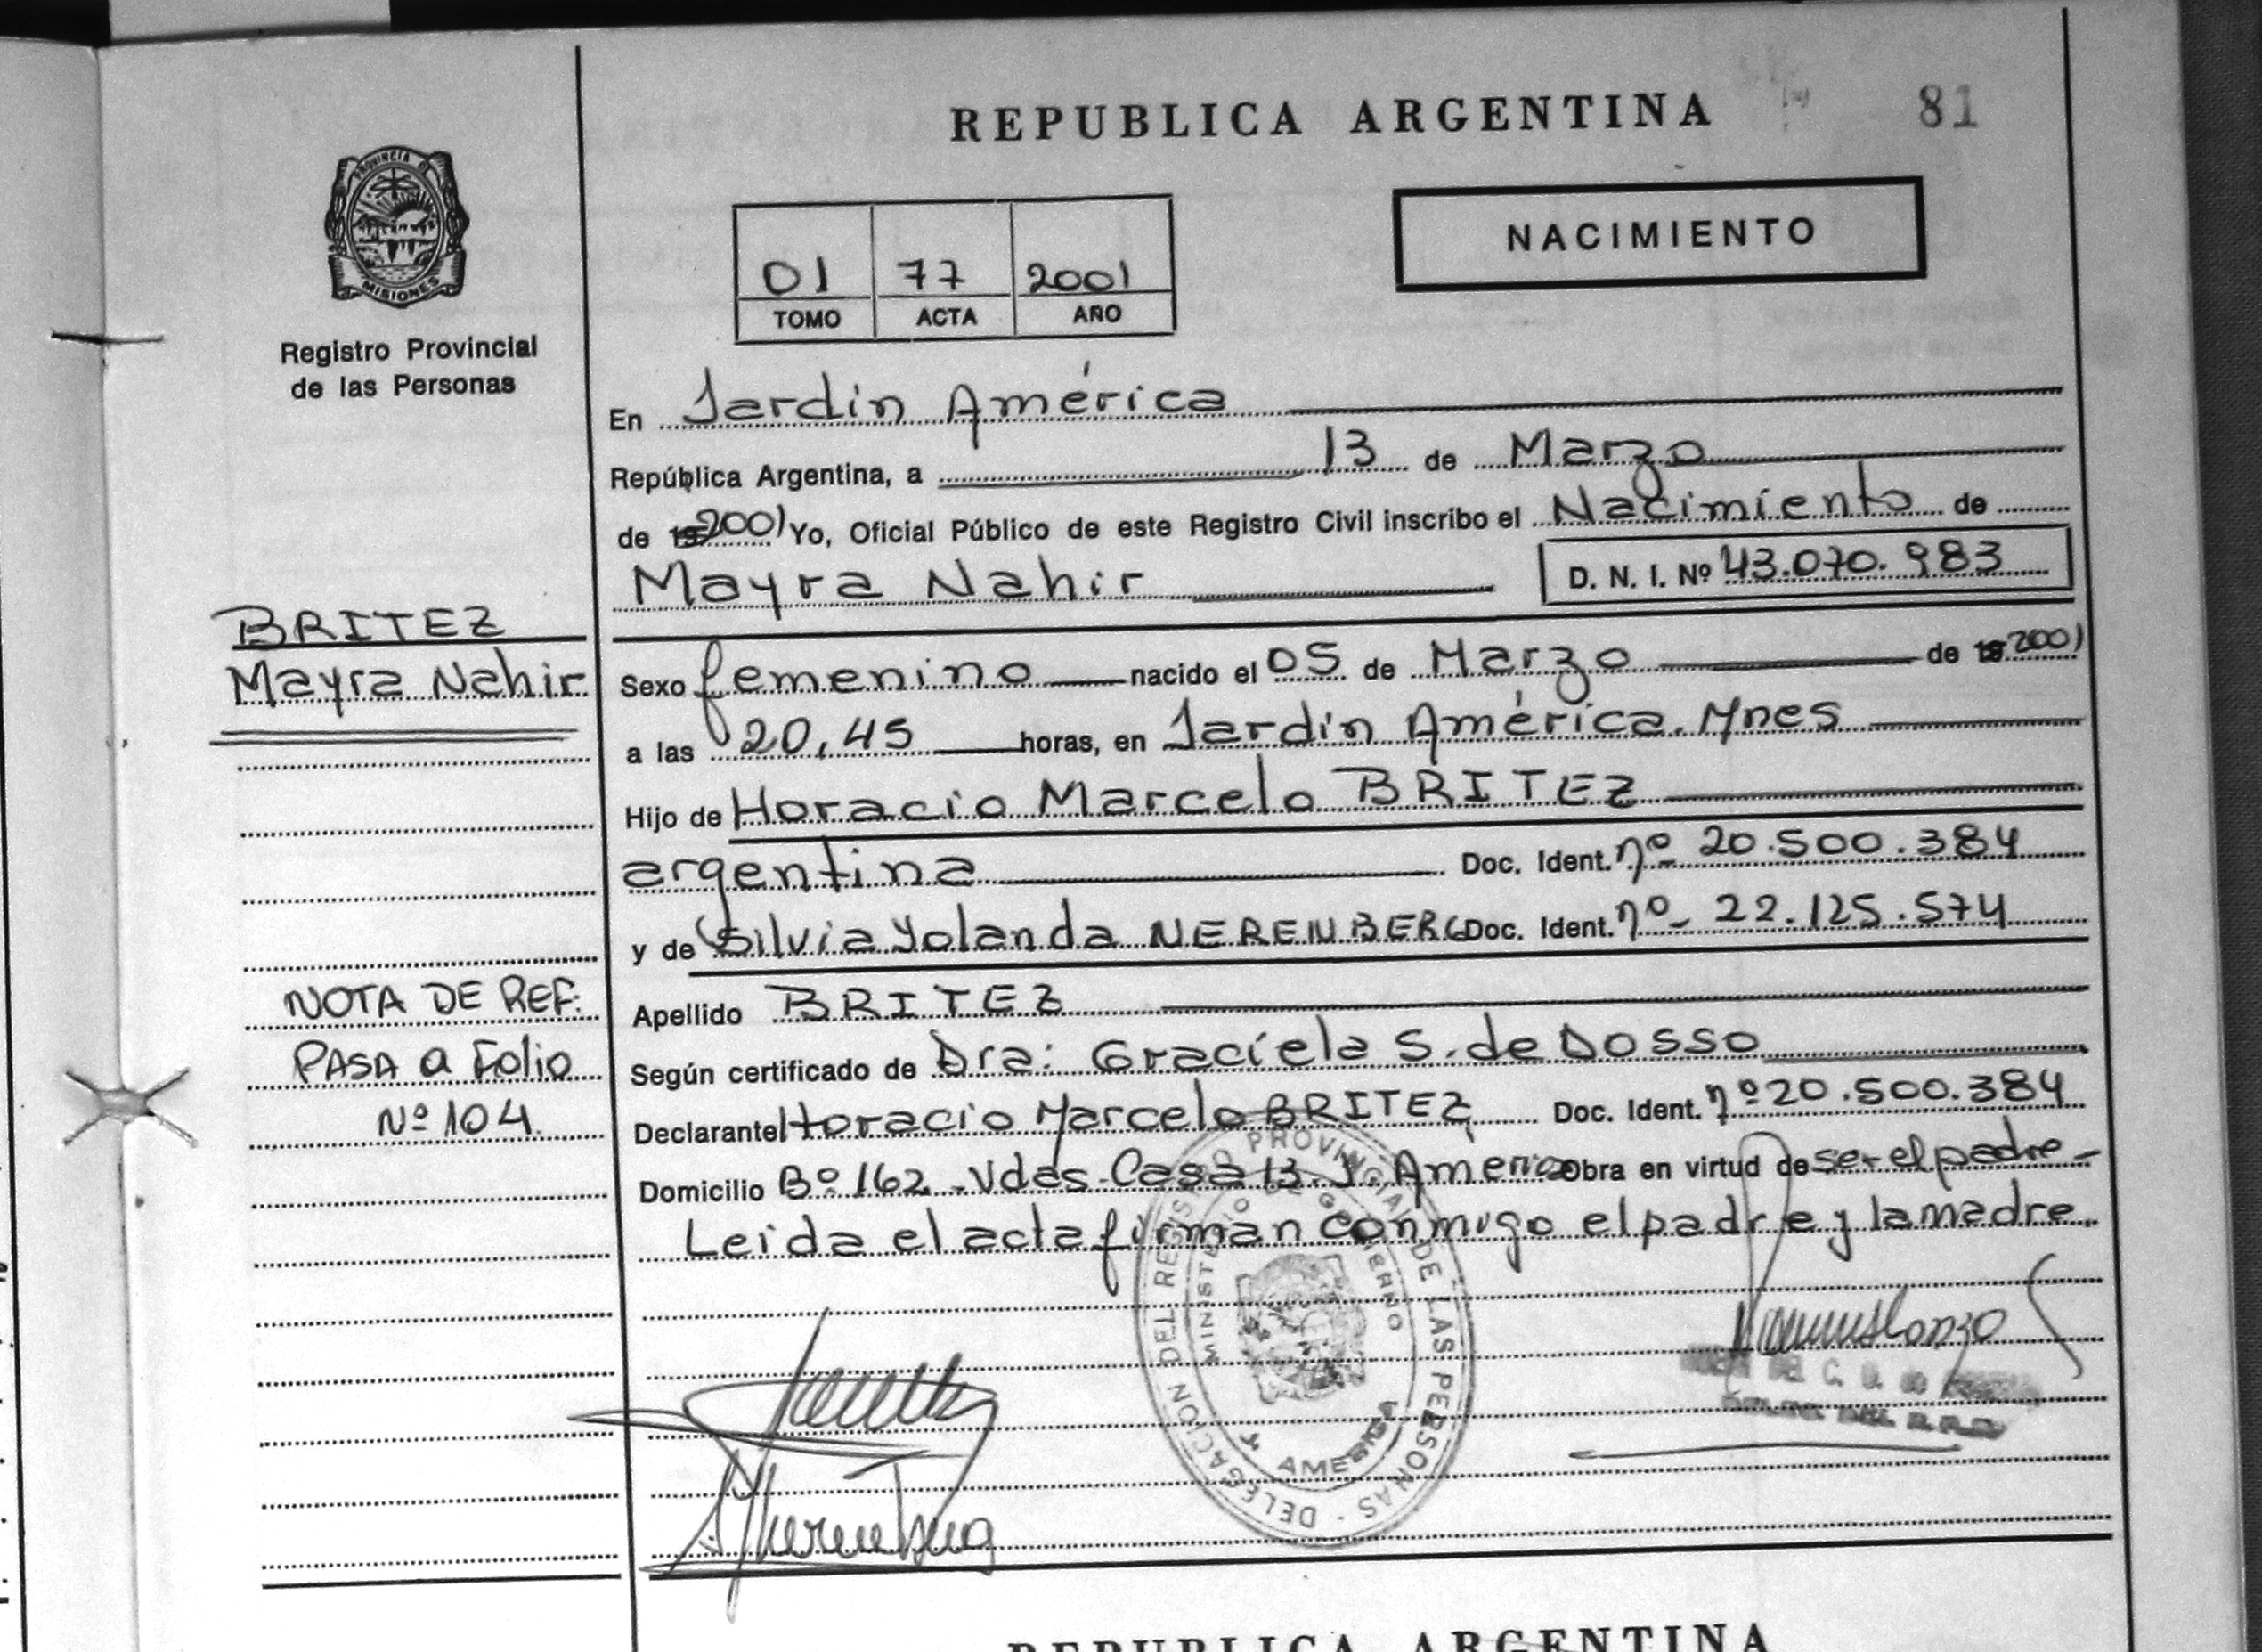 REPUBLICA ARGENTINA
81
PROVINCIA DE
MISIONES
Registro Provincial
de las Personas
NACIMIENTO
01 77 2001
TOMO ACTA AÑO
En Jardín América
República Argentina, a 13 de Marzo
de 19 2001 Yo, Oficial Público de este Registro Civil inscribo el Nacimiento de
Mayra Nahir D. N. I. Nº 43.070.983
BRITEZ
Mayra Nahir
Sexo femenino nacido el 05 de Marzo de 19 2001
a las 20,45 horas, en Jardín América. Mnes
Hijo de Horacio Marcelo BRITEZ
argentina Doc. Ident. nº 20.500.384
y de Silvia Yolanda NERENBERG Doc. Ident. nº 22.125.574
NOTA DE REF:
PASA a Folio
Nº 104
Apellido BRITEZ
Según certificado de Dra: Graciela S. de DOSSO
Declarante Horacio Marcelo BRITEZ, Doc. Ident. nº 20.500.384
Domicilio Bº 162 - Vdas. Casa 13. J. America Obra en virtud de ser el padre -
Leida el acta firman conmigo el padre y la madre.
DELEGACION DEL REGISTRO PROVINCIAL DE LAS PERSONAS
MINISTERIO DE GOBIERNO
J. AMERICA
REPUBLICA ARGENTINA